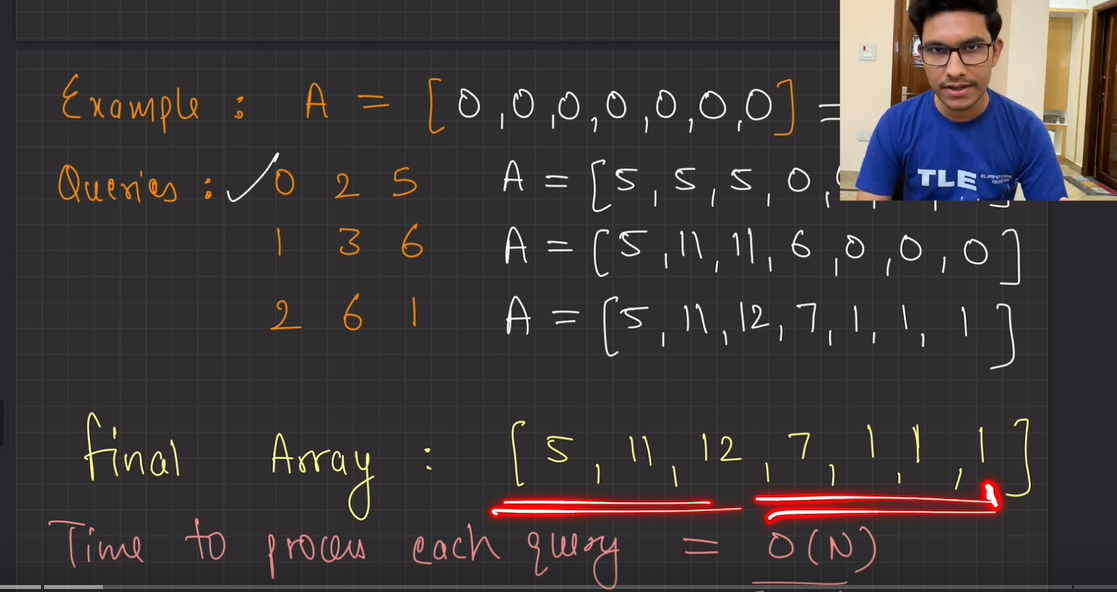 Example : A = [0,0,0,0,0,0,0] =
Queries : 0 2 5 A = [5,5,5,0,
1 3 6 A = [5,11,11,6,0,0,0]
2 6 1 A = [5,11,12,7,1,1,1]
TLE
final Array : [5,11,12,7,1,1,1]
Time to process each query = O(N)